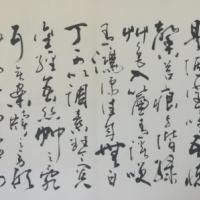 是陋室惟吾德
馨苔痕上階綠
艸色入簾青談咲
有鴻儒往來無白
丁可以調素琴閱
金經無絲竹之亂
耳無案牘之勞形